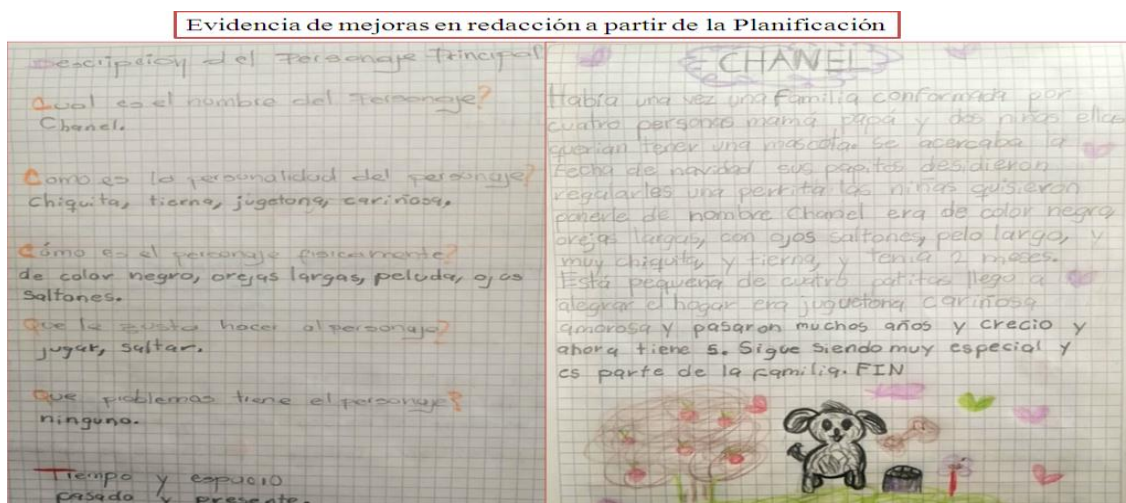 Evidencia de mejoras en redacción a partir de la Planificación
Descripcion del Personaje Principal
Cual es el nombre del Personaje?
Chanel.
Como es la personalidad del personaje?
chiquita, tierna, jugetona, cariñosa,
Cómo es el personaje fisicamente?
de color negro, orejas largas, peluda, ojos
saltones.
Que le gusta hacer al personaje?
jugar, saltar.
Que problemas tiene el personaje?
ninguno.
Tiempo y espacio
pasado y presente.
CHANEL
Había una vez una familia conformada por
cuatro personas mamá, papá y dos niñas ellas
querian tener una mascota. se acercaba la
fecha de navidad sus papitos desidieron
regalarles una perrita las niñas quisieron
ponerle de nombre Chanel era de color negro
orejas largas, con ojos saltones, pelo largo, y
muy chiquita, y tierna, y tenía 2 meses.
Está pequeña de cuatro patitas llego a
alegrar el hogar era juguetona cariñosa
amorosa y pasaron muchos años y crecio y
ahora tiene 5. Sigue siendo muy especial y
es parte de la familia. FIN